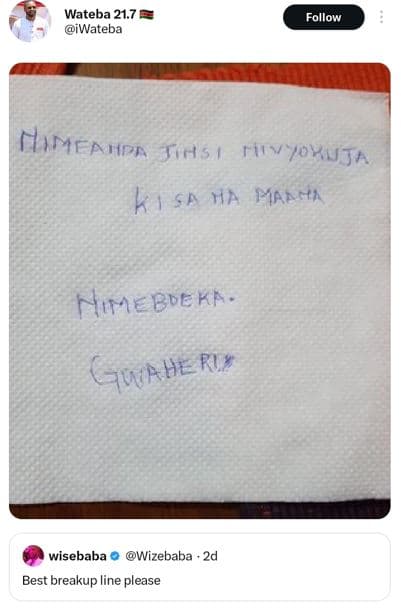 Wateba 21.7 🇰🇪
@iWateba
Follow
NIMEANDA JINSI NIVYOKUJA
KISA NA MAANA
NIMEBOEKA.
GWAHERI
wisebaba @Wizebaba · 2d
Best breakup line please